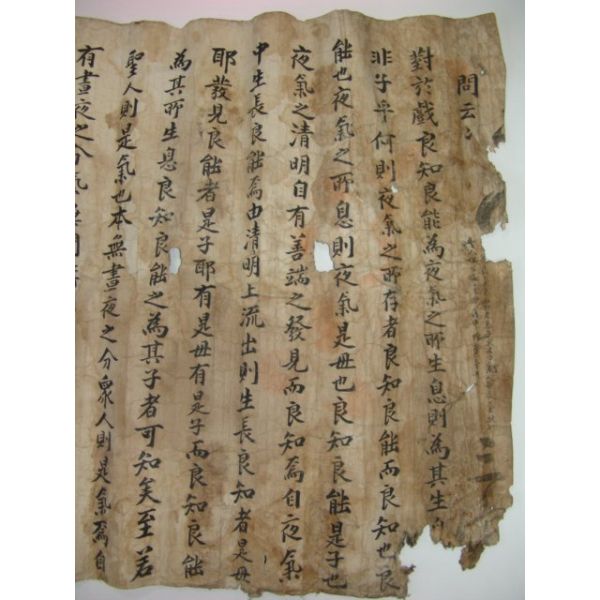 問云〻
對於戲良知良能為夜氣之所生息則為其生
非子乎何則夜氣之所存者良知良能而良知也良
能也夜氣之所息則夜氣是毋也良知良能是子也
夜氣之清明自有善端之發見而良知焉自夜氣
中生長良能焉由清明上流出則生長良知者是毋
耶發見良能者是子耶有是毋有是子而良知良能
為其所生息良知良能之為其子者可知矣至若
聖人則是氣也本無晝夜之分衆人則是氣焉自
有晝夜之分氣